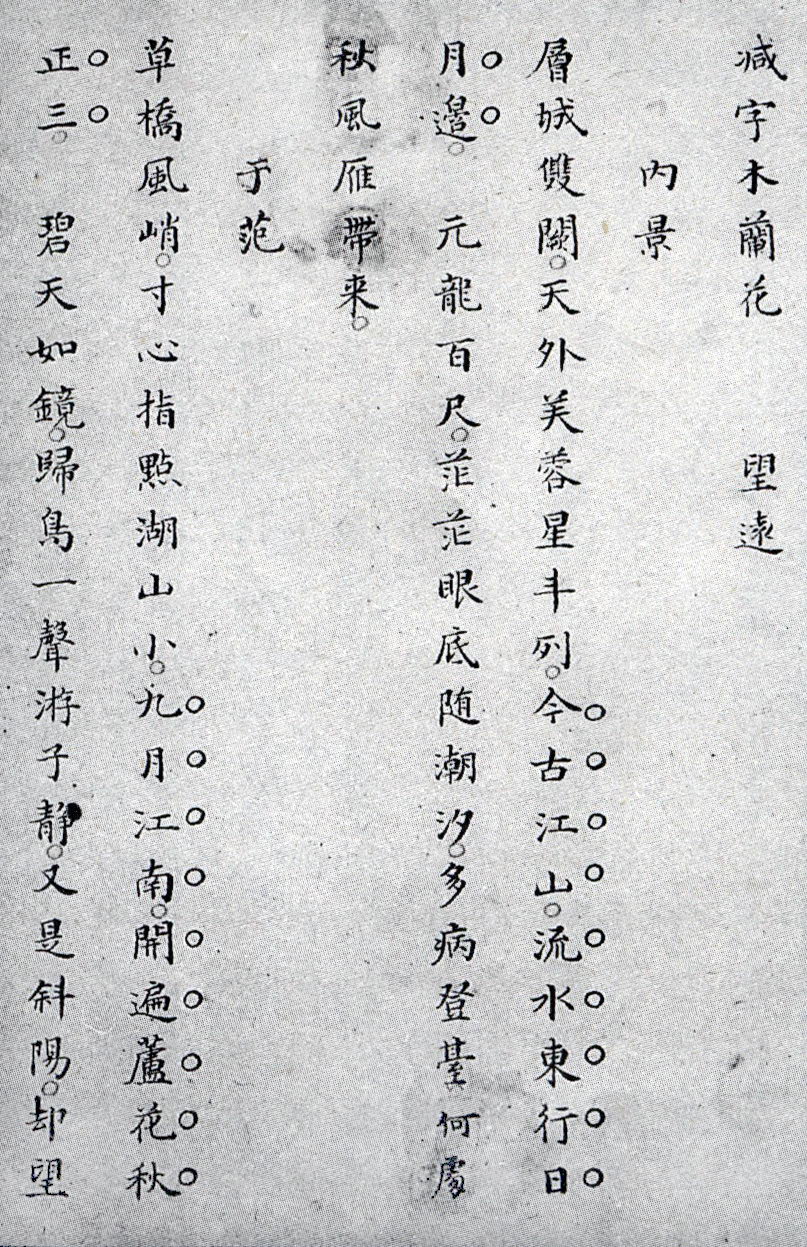 減字木蘭花　望遠
内景
層城雙闕。天外芙蓉星斗列。今古江山。流水東行日
月邊。　元龍百尺。茫茫眼底随潮汐。多病登臺何處
秋風雁帶来。
于范
草橋風峭。寸心指點湖山小。九月江南。開遍蘆花秋
正三。　碧天如鏡。歸鳥一聲游子靜。又是斜陽。却望